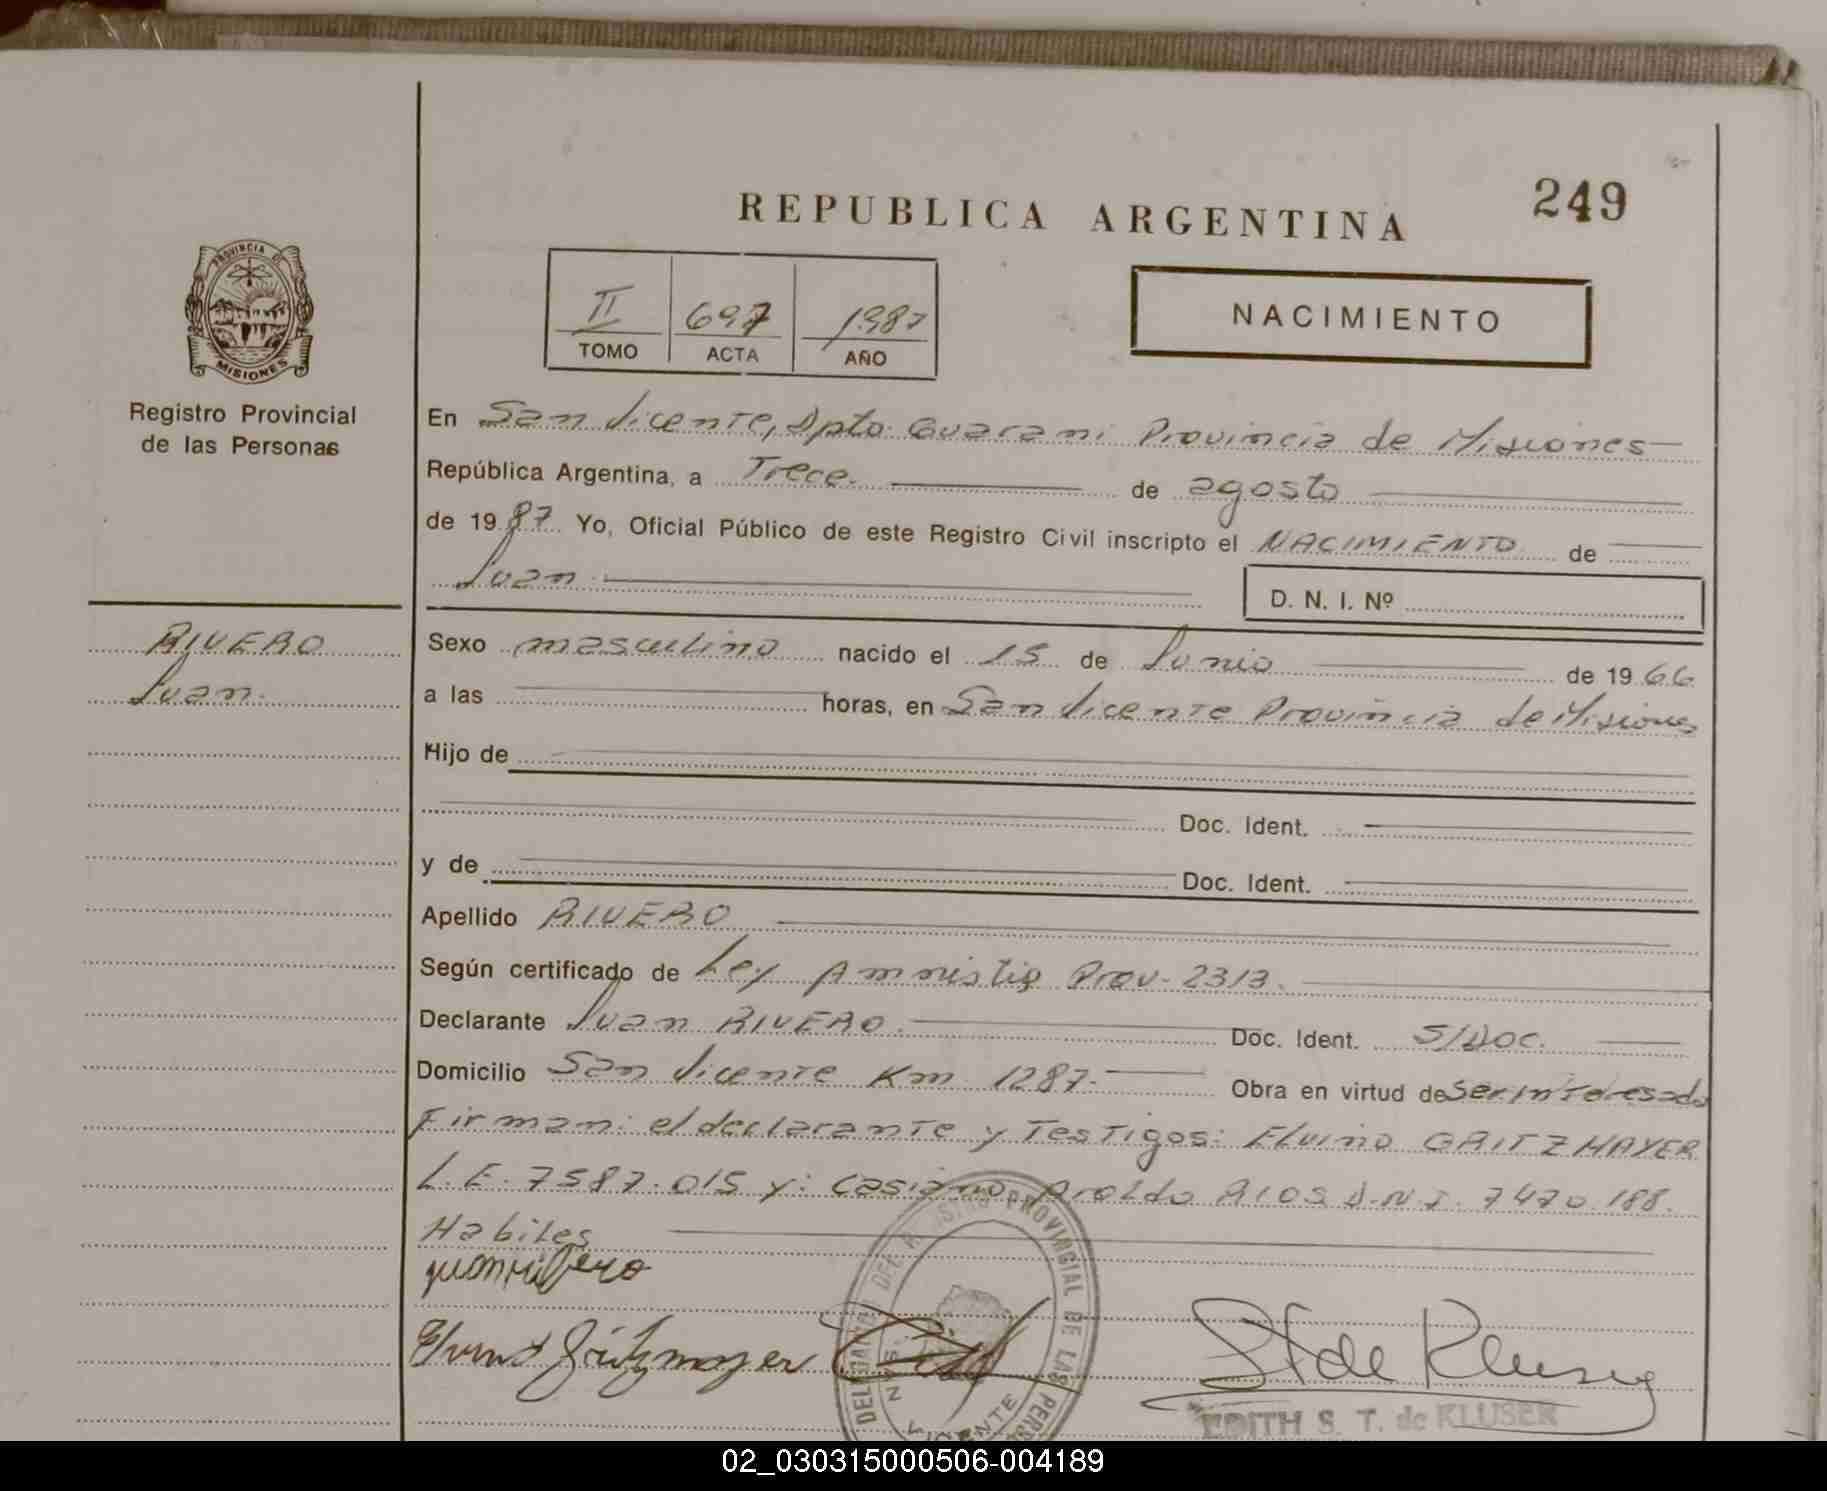 249
REPUBLICA ARGENTINA
PROVINCIA DE
MISIONES
Registro Provincial
de las Personas
II 697 1987
TOMO ACTA AÑO
NACIMIENTO
En San Vicente, Dpto. Guarani Provincia de Misiones
República Argentina, a Trece. de agosto
de 1987 Yo, Oficial Público de este Registro Civil inscripto el NACIMIENTO de
Juan
D. N. I. Nº
RIVERO
Juan.
Sexo masculino nacido el 15 de Junio de 1966
a las horas, en San Vicente Provincia de Misiones
Hijo de
Doc. Ident.
y de Doc. Ident.
Apellido RIVERO
Según certificado de Ley Amnistia Prov. 2313.
Declarante Juan RIVERO. Doc. Ident. S/DOC.
Domicilio San Vicente Km 1287. Obra en virtud de Ser interesado
Firman: el declarante y Testigos: Elvino GRITZMAYER
L.E. 7587.015 y: Casiano Aroldo RIOS D.N.I. 7470.188.
Habiles
juan rivero
DELEGACION DEL REGISTRO PROVINCIAL DE LAS PERS
VICENTE
St de Kluser
EDITH S. T. de KLUSER
02_030315000506-004189